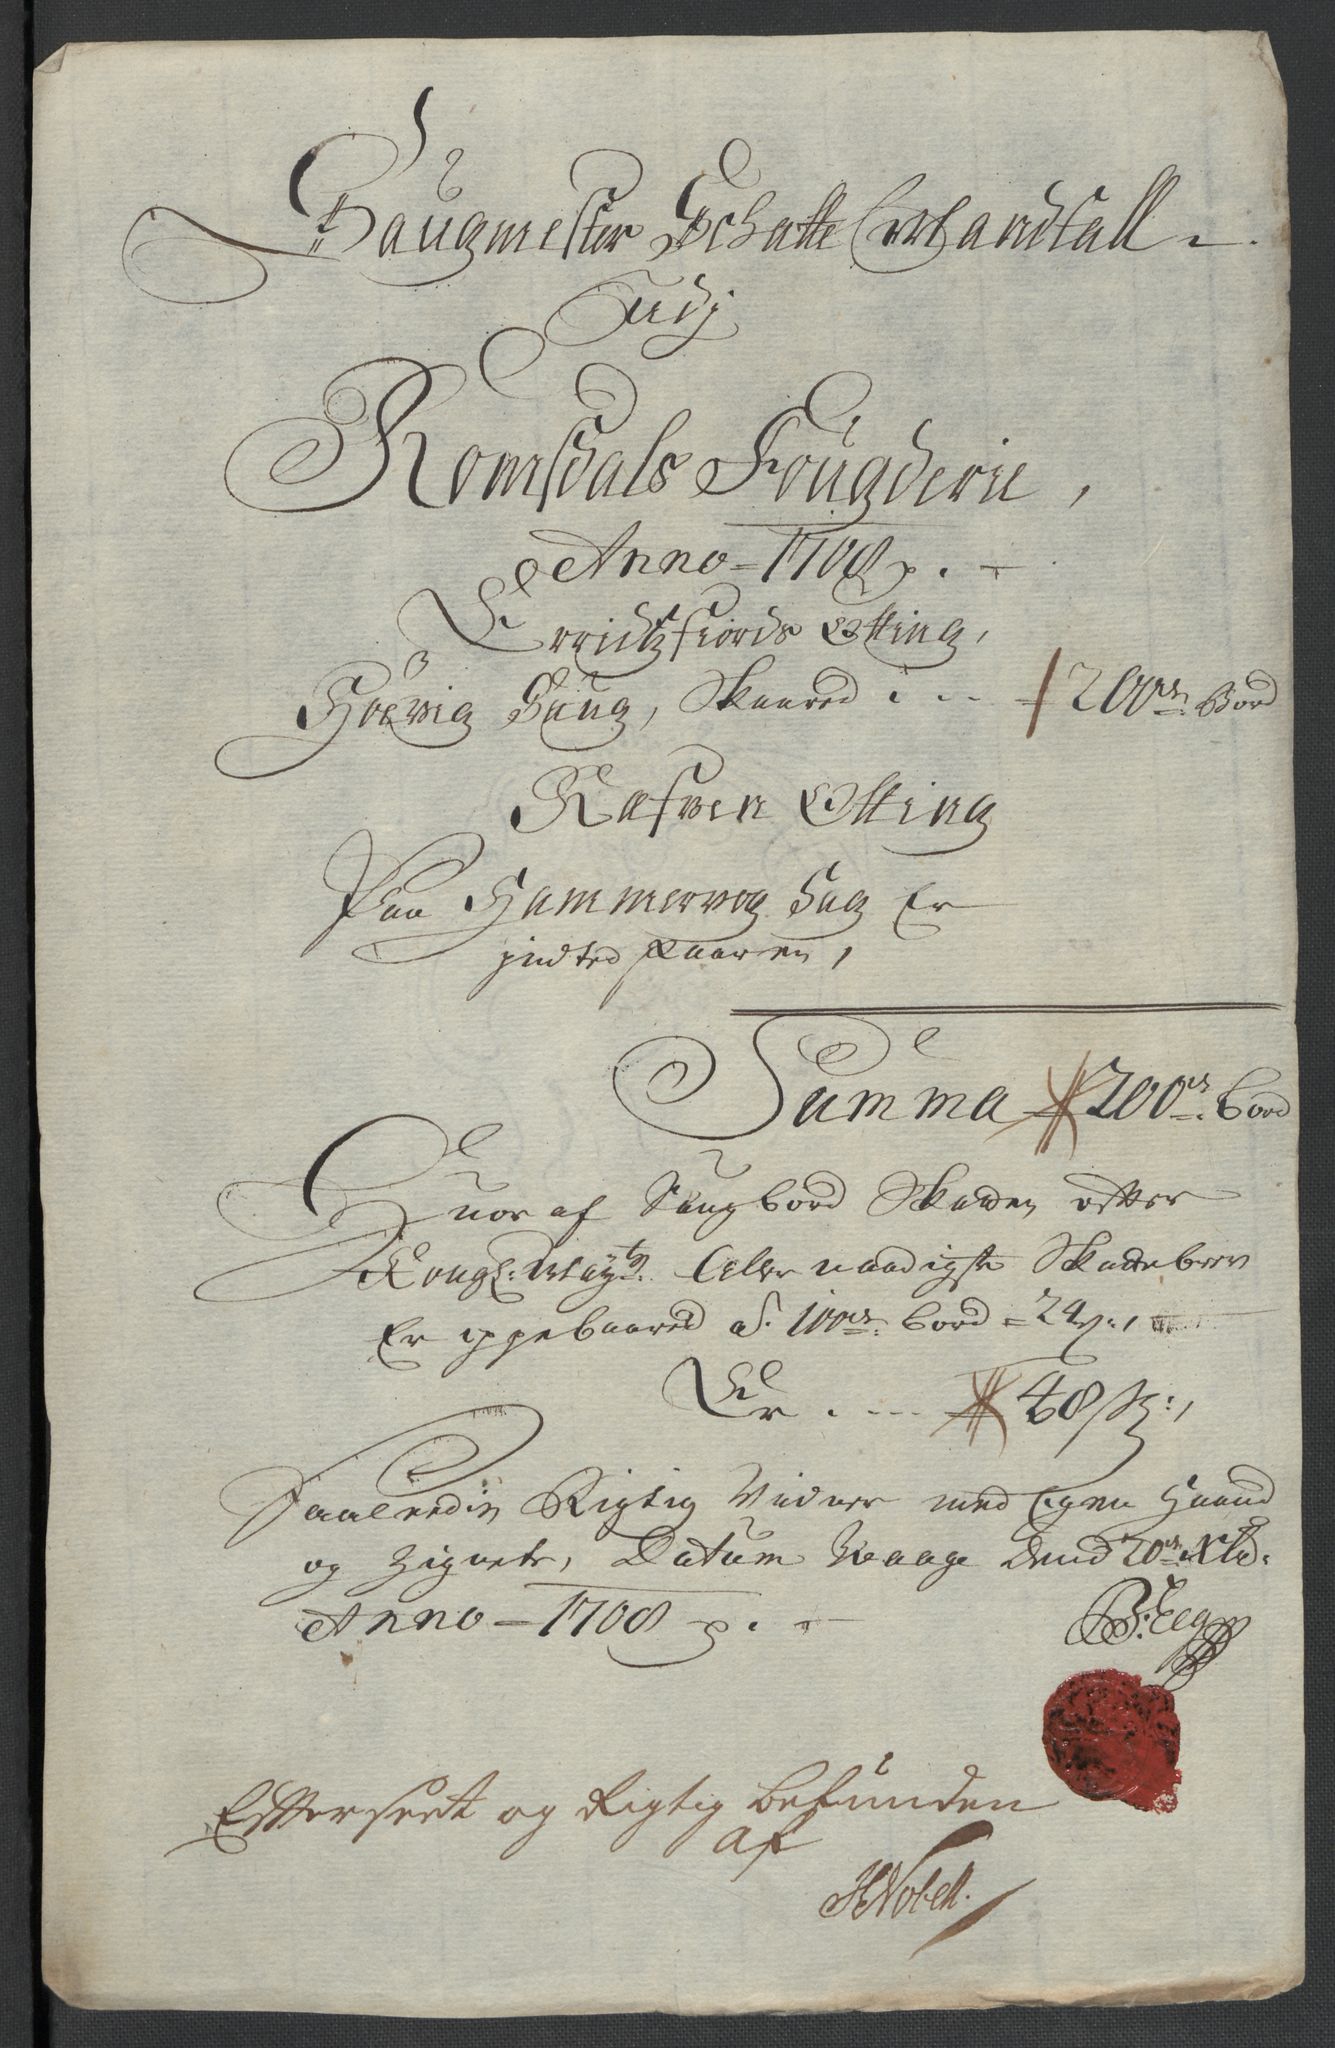 Saugmester Schatte Mandtall
Udj
Romsdals Fougderie,
Anno - 1708 p.
Erridsfiords Otting,
Høevig Saug, Skaared ... 200de: Bord
Ræfven Otting
Paa Hammervog Sag Er
jndted skaaren,
Summa 200de: bord
Huor af Saugbord Skaden efter
Kongl: Mayts: Aller naadigste Skattebrev
Er oppebaared af 100de: bord = 24 s:,
Er .... 48 sk:,
Saaleedis Rigtig Vidner med Egen Haand
og Zignete, Datum Waage Dend 20de Xbr:
Anno - 1708 p.
Efterseet og Rigtig befunden
af
HNobell.